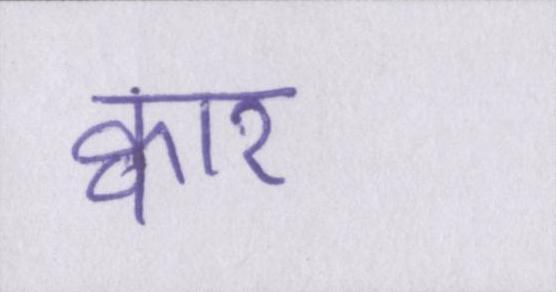 क्वार